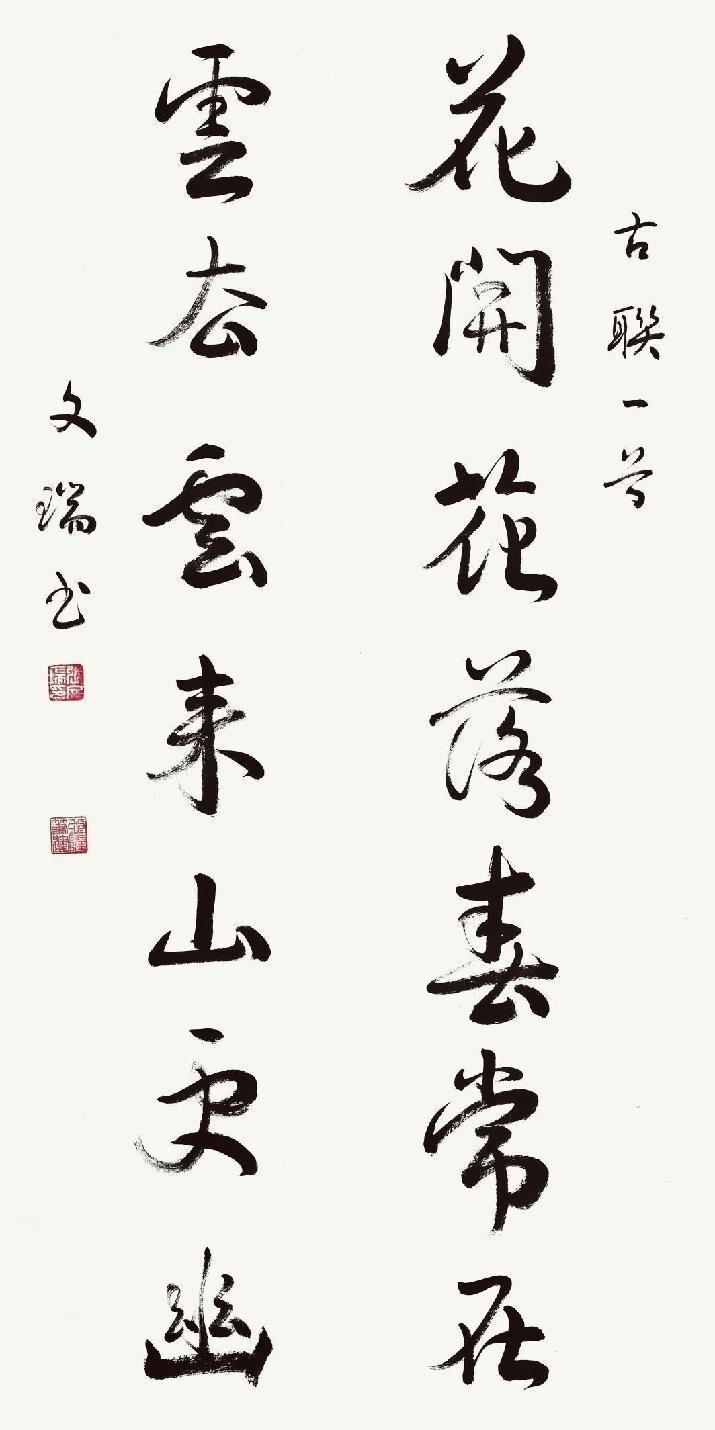 古聯一首
花開花落春常在
雲去雲來山更幽
文瑞书